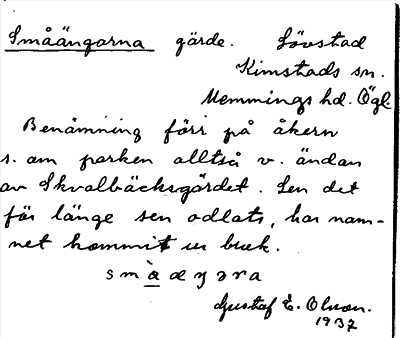 Småängarna gärde. Lövstad
Kimstads sn.
Memmings hd. Ögl.
Benämning förr på åkern
s. om parken alltså v. ändan
av Skvalbäcksgärdet. Sen det
för länge sen odlats, har nam-
net kommit ur bruk.
smàæŋɔra
Gustaf E. Olsson.
1937